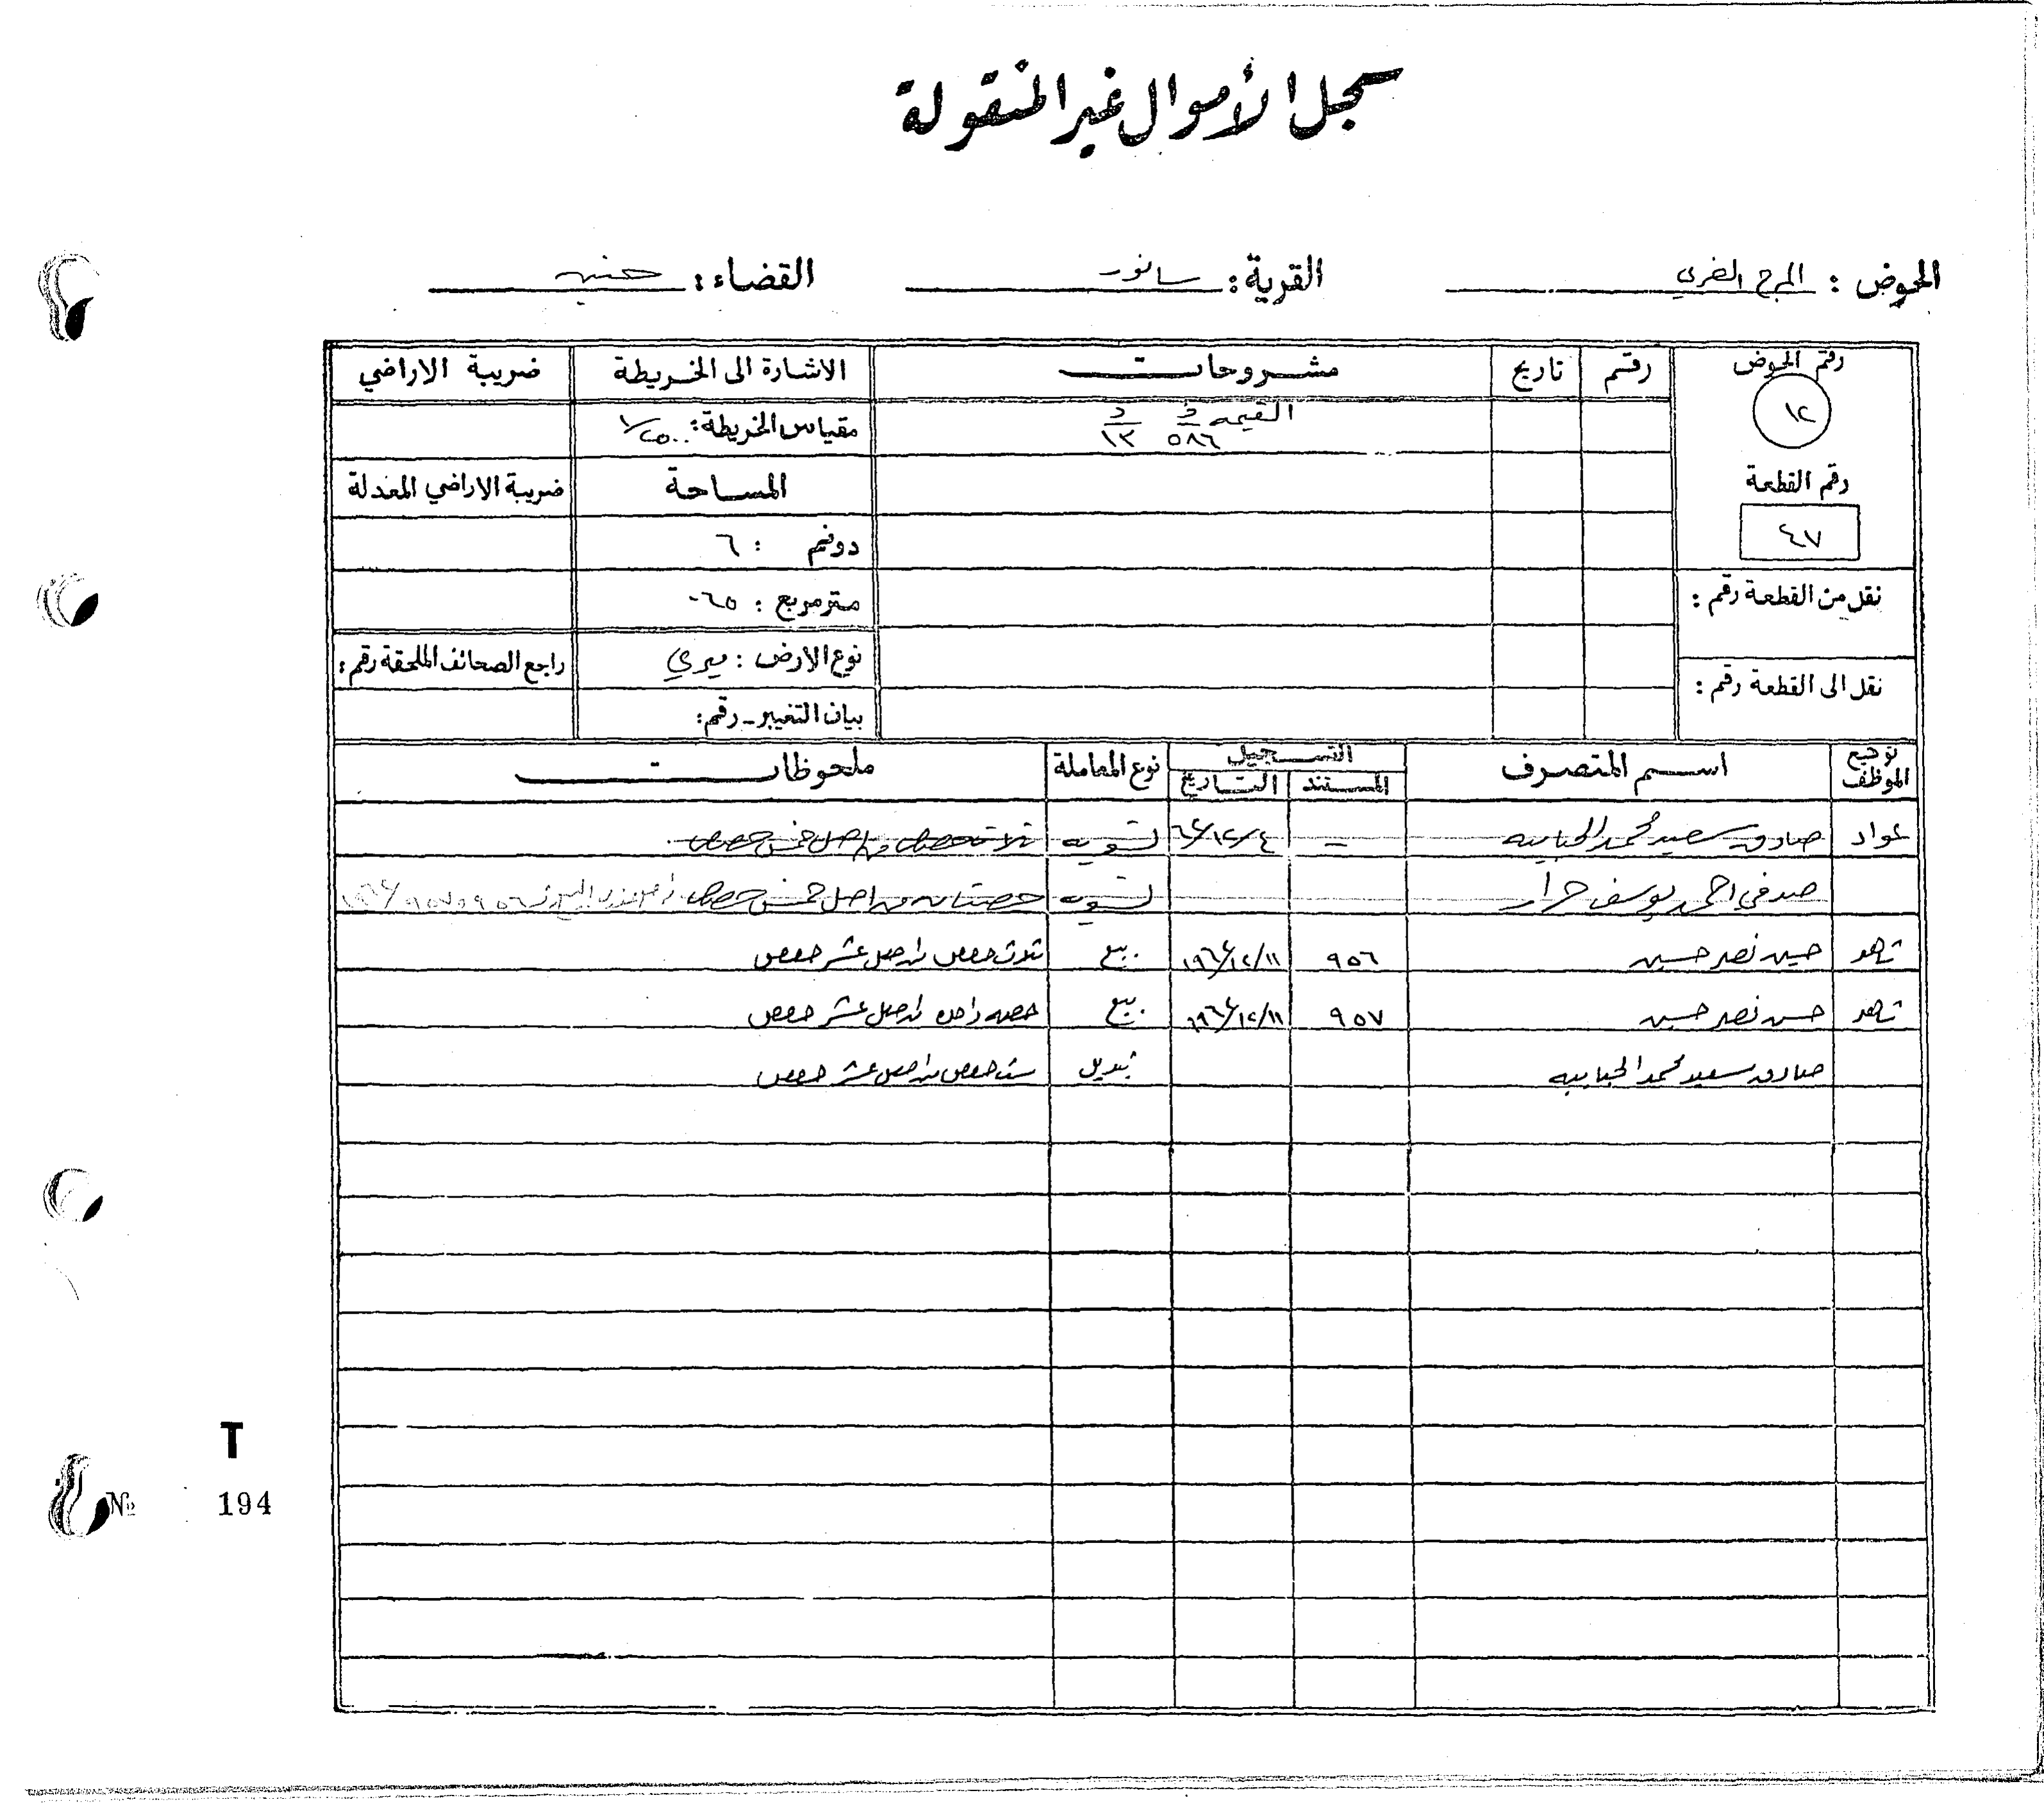 سجل الأموال غير المنقولة
الحوض : المرج الغربي القرية : سانور القضاء : جنين
رقم الحوض رقم تاريخ مشروحات الاشارة الى الخريطة ضريبة الاراضي
١٢ القيمة د ٥٨٦ د ١٣ مقياس الخريطة : ١/٢٥٠٠
رقم القطعة المساحة ضريبة الاراضي المعدلة
٤٧ دونم : ٦
نقل من القطعة رقم : متر مربع : ٠٦٥
نوع الارض : ميري راجع الصحائف الملحقة رقم :
نقل الى القطعة رقم : بيان التغيير - رقم :
توقيع الموظف اسم المتصرف التسجيل نوع المعاملة ملحوظات
المستند التاريخ
عواد صادق سعيد محمد الحبايبه = ٦٤/١٢/٤ تسويه ثلاث حصص من اصل خمس حصص
صدقي احمد يوسف جرار تسويه حصتان من اصل خمس حصص
شاهر حسين نصر حسين ٩٥٦ ١٩٦٤/١٢/١١ بيع ثلاث حصص من اصل عشر حصص
شاهر حسن نصر حسين ٩٥٧ ١٩٦٤/١٢/١١ بيع حصه واحده من اصل عشر حصص
صادق سعيد محمد الحبايبه تبديل ست حصص من اصل عشر حصص
T
№ 194